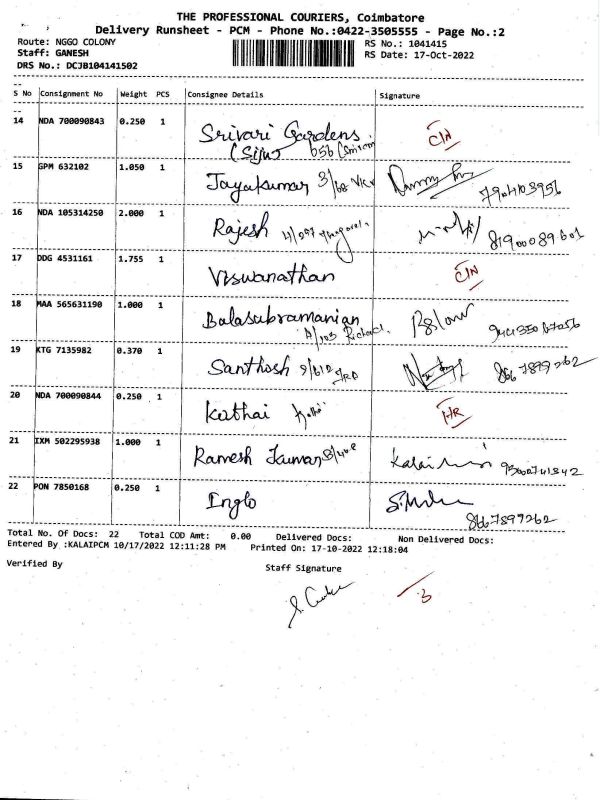 THE PROFESSIONAL COURIERS, Coimbatore
Delivery Runsheet - PCM - Phone No.:0422-3505555 - Page No.:2
Route: NGGO COLONY RS No.: 1041415
Staff: GANESH RS Date: 17-Oct-2022
DRS No.: DCJB104141502
S No Consignment No Weight PCS Consignee Details Signature
14 NDA 700090843 0.250 1 Srivari Gardens
(Siju) B56
15 GPM 632102 1.050 1 Jayakumar 3/68
16 NDA 105314250 2.000 1 Rajesh 81900089601
17 DDG 4531161 1.755 1 Viswanathan
18 MAA 565631190 1.000 1 Balasubramanian
A/103
19 KTG 7135982 0.370 1 Santhosh 8667899262
20 NDA 700090844 0.250 1 Kethai HR
21 IXM 502295938 1.000 1 Ramesh Kumar
22 PON 7850168 0.250 1 Inglo
8667899262
Total No. Of Docs: 22 Total COD Amt: 0.00 Delivered Docs: Non Delivered Docs:
Entered By :KALAIPCM 10/17/2022 12:11:28 PM Printed On: 17-10-2022 12:18:04
Verified By Staff Signature
3